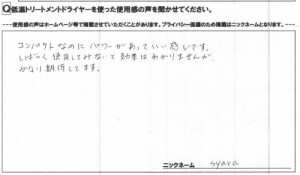 Q低温トリートメントドライヤーを使った使用感の声を聞かせてください。
----使用感の声はホームページ等で掲載させていただくことがあります。プライバシー保護のため掲載はニックネームとなります。----
コンパクトなのにパワーがあっていい感じです。
しばらく使用してみないと効果はわかりませんが、
かなり期待してます。
ニックネーム syara